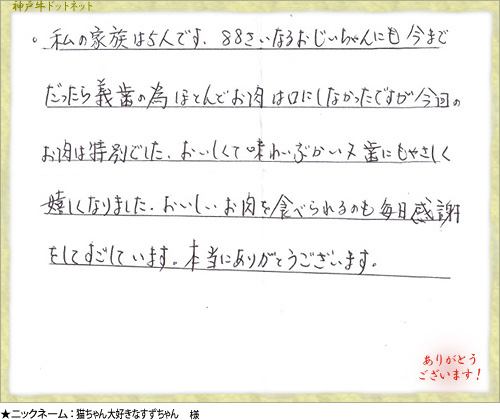 神戸牛ドットネット
。私の家族は5人です、88さいなるおじいちゃんにも今まで
だったら義歯の為ほとんどお肉は口にしなかったですが今回の
お肉は特別でした、おいしくて味わいぶかい又歯にもやさしく
嬉しくなりました、おいしいお肉を食べられるのも毎日感謝
をしてすごしています。本当にありがとうございます。
ありがとう
ございます！
★ニックネーム：猫ちゃん大好きなすずちゃん　様